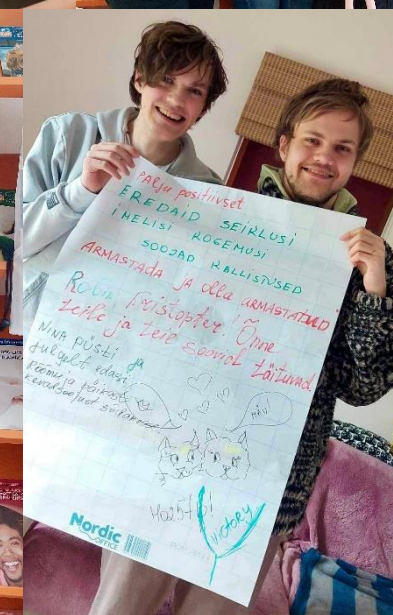 PALJU positiivset
EREDAID SEIKLUSI
IMELISI KOGEMUSI
SOOJAD KALLISTUSED
ARMASTADA JA olla ARMASTATUD
Robin, Kristopfer! Õnne
teile ja teie soovid täituvad
NINA PÜSTI ja
julgelt edasi!
Rõõmu ja päikest
NÄU
VICTORY
Nordic
OFFICE